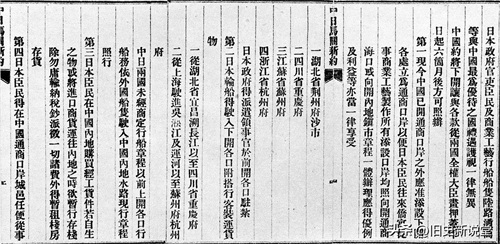 日本政府官吏臣民及商業工藝行船船隻陸路通
等與中國最為優待之國禮遇護視一律無異
中國約將下開讓與各款從兩國全權大臣畫押蓋
日起六個月後方可照辦
第一現今中國已開通商口岸之外應准添設下
各處立為通商口岸以便日本臣民往來僑寓
事商業工藝製作所有添設口岸均照向開通商
海口或向開內地鎮市章程一體辦理應得優例
及利益等亦當一律享受
一湖北省荊州府沙市
二四川省重慶府
三江蘇省蘇州府
四浙江省杭州府
日本政府得派遣領事官於前開各口駐紮
第二日本輪船得駛入下開各口附搭行客裝運貨
物
一從湖北省宜昌溯長江以至四川省重慶府
二從上海駛進吳淞江及運河以至蘇州府杭州
府
中日兩國未經商定行船章程以前上開各口行
船務依外國船隻駛入中國內地水路現行章程
照行
第三日本臣民在中國內地購買經工貨件若自生
之物或將進口商貨運往內地之時欲暫行存棧
除勿庸輸納稅鈔派徵一切諸費外得暫租棧房
存貨
第四日本臣民得在中國通商口岸城邑任便從事
中日馬關新約
头条 @旧史新说